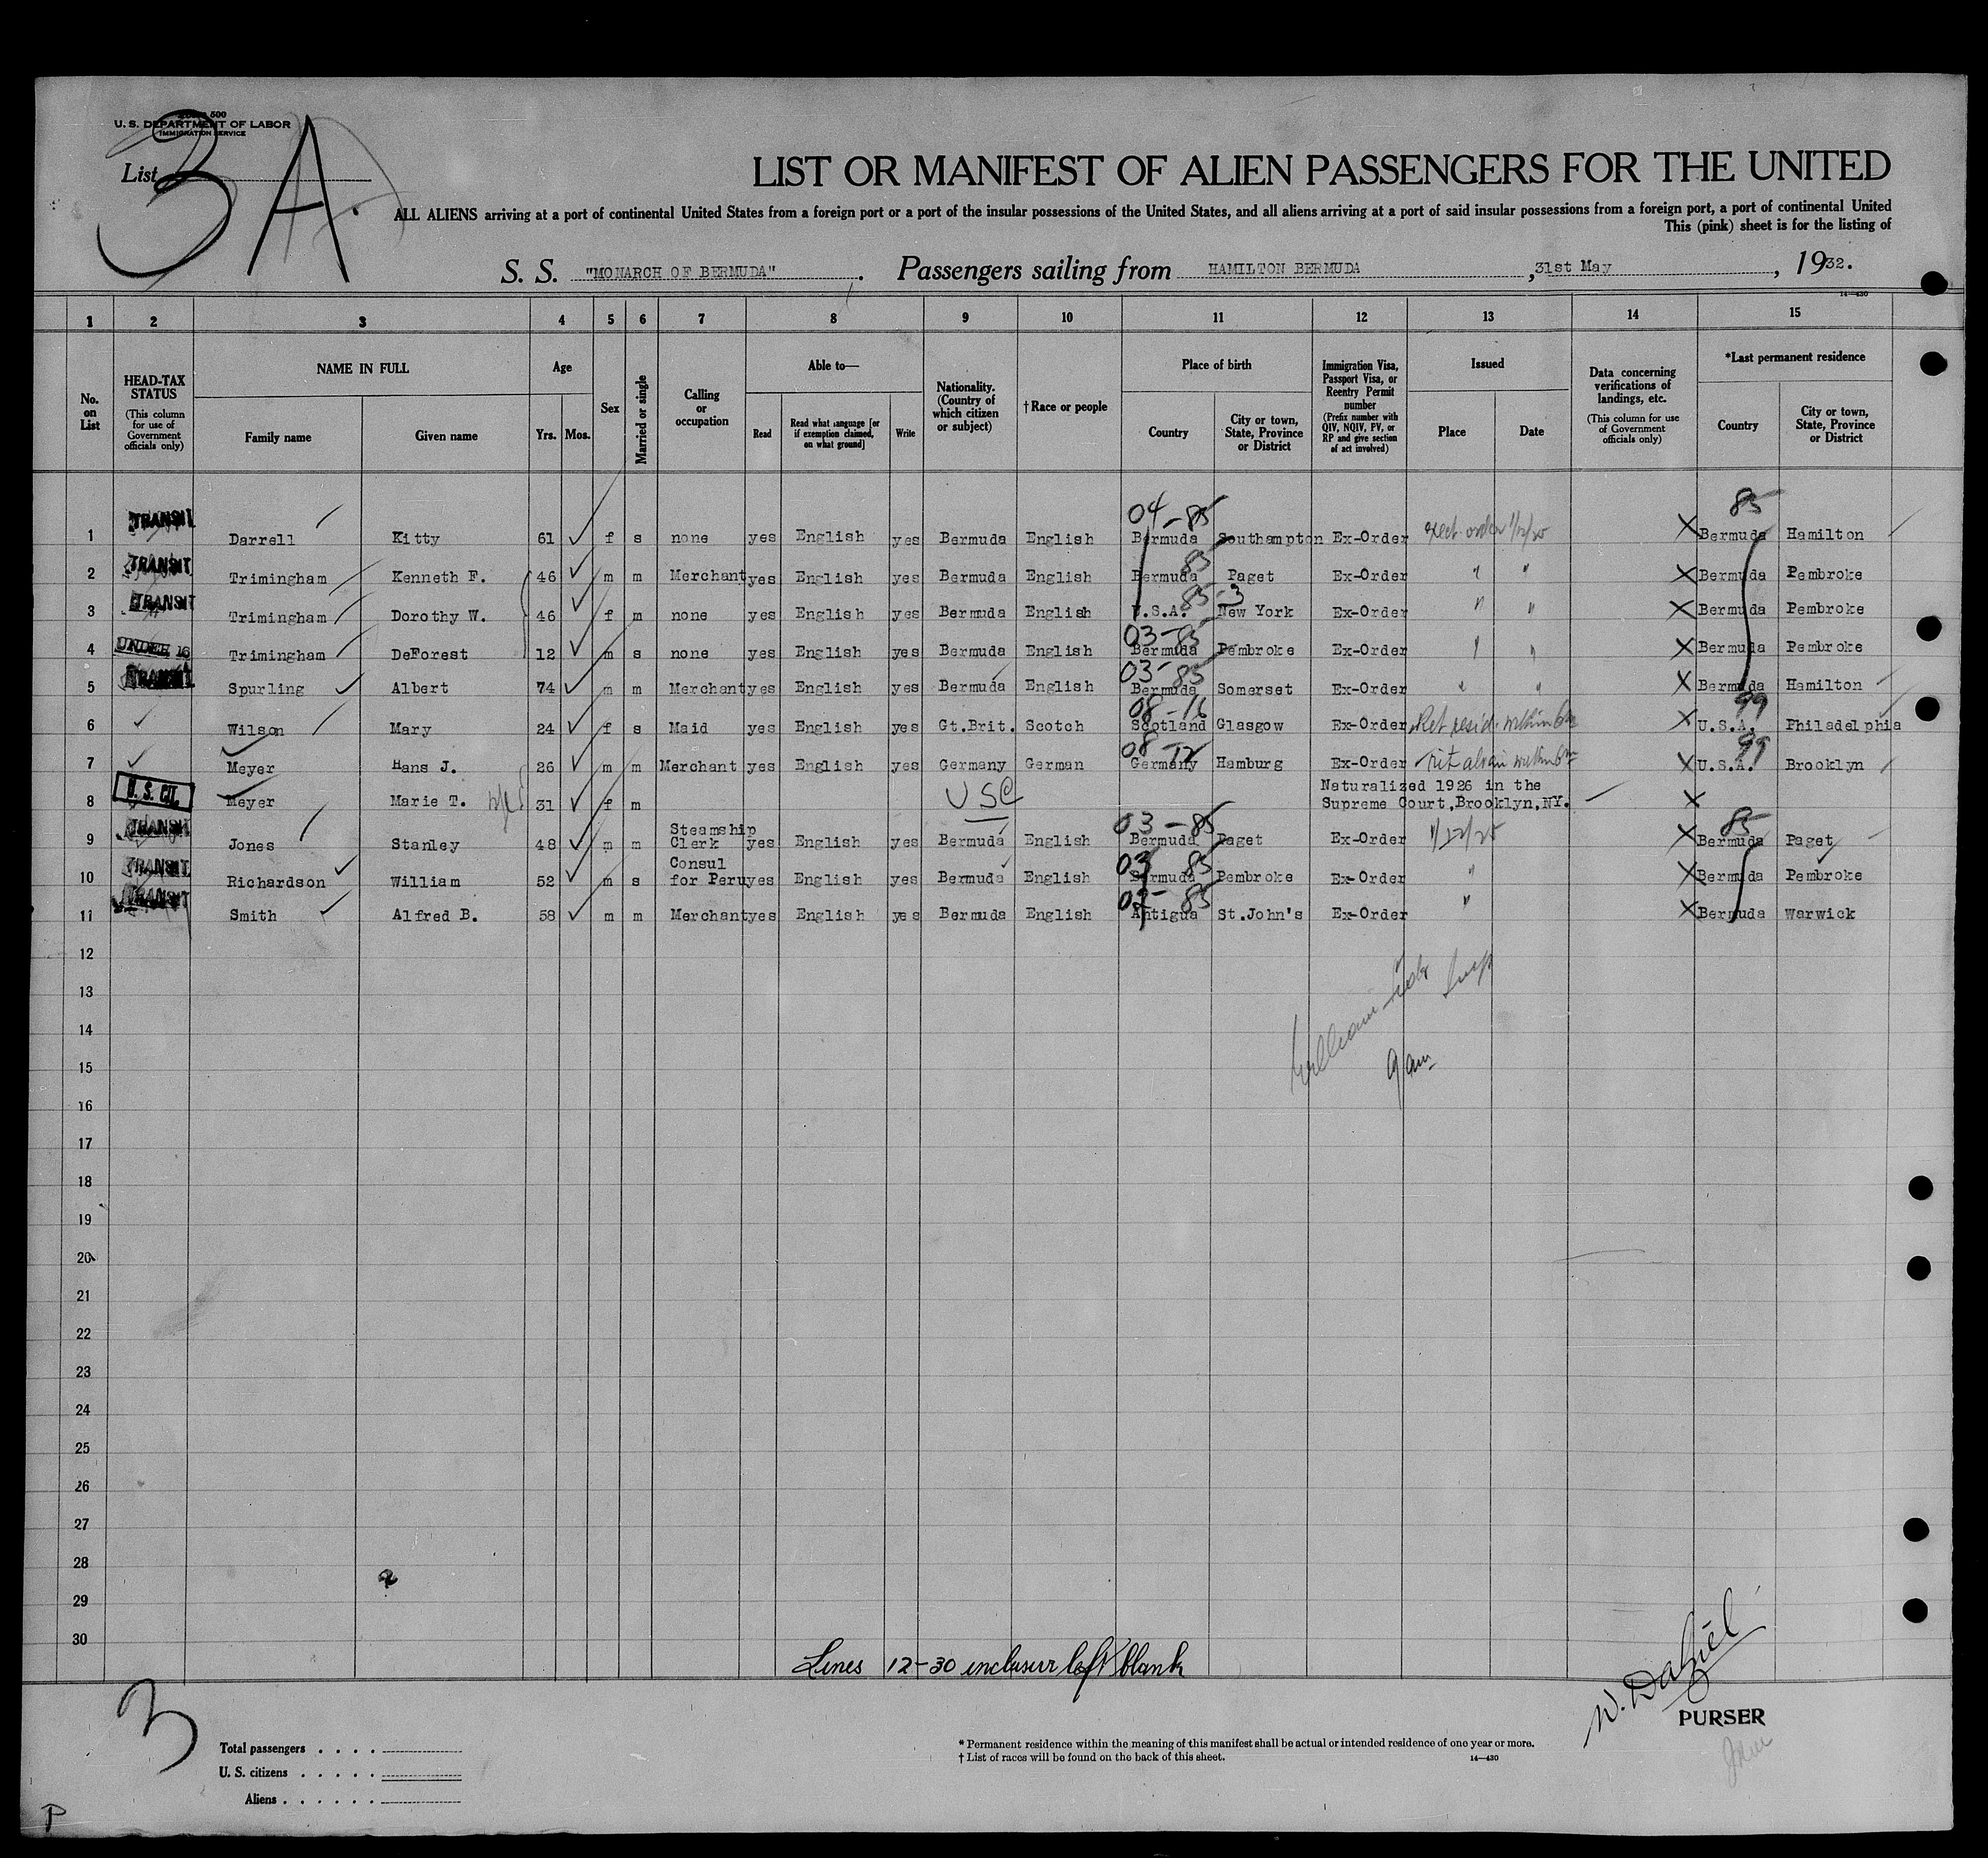 Form 500
U. S. DEPARTMENT OF LABOR
IMMIGRATION SERVICE
List 3 A.
LIST OR MANIFEST OF ALIEN PASSENGERS FOR THE UNITED
ALL ALIENS arriving at a port of continental United States from a foreign port or a port of the insular possessions of the United States, and all aliens arriving at a port of said insular possessions from a foreign port, a port of continental United
This (pink) sheet is for the listing of
S. S. "MONARCH OF BERMUDA". Passengers sailing from HAMILTON BERMUDA, 31st May, 1932.
14—430
1 2 3 4 5 6 7 8 9 10 11 12 13 14 15
No. on List
HEAD-TAX STATUS (This column for use of Government officials only)
NAME IN FULL Family name Given name
Age Yrs. Mos.
Sex
Married or single
Calling or occupation
Able to— Read Read what language [or if exemption claimed, on what ground] Write
Nationality. (Country of which citizen or subject)
†Race or people
Place of birth Country City or town, State, Province or District
Immigration Visa, Passport Visa, or Reentry Permit number (Prefix number with QIV, NQIV, PV, or RP and give section of act involved)
Issued Place Date
Data concerning verifications of landings, etc. (This column for use of Government officials only)
*Last permanent residence Country City or town, State, Province or District
04-85 85
1 TRANSIT Darrell Kitty 61 f s none yes English yes Bermuda English Bermuda Southampton Ex-Order exect. order 1/12/25 X Bermuda Hamilton
85
2 TRANSIT Trimingham Kenneth F. 46 m m Merchant yes English yes Bermuda English Bermuda Paget Ex-Order " " X Bermuda Pembroke
85-3
3 TRANSIT Trimingham Dorothy W. 46 f m none yes English yes Bermuda English U.S.A. New York Ex-Order " " X Bermuda Pembroke
03-85
4 UNDER 16 Trimingham DeForest 12 m s none yes English yes Bermuda English Bermuda Pembroke Ex-Order " " X Bermuda Pembroke
03-85
5 TRANSIT Spurling Albert 74 m m Merchant yes English yes Bermuda English Bermuda Somerset Ex-Order " " X Bermuda Hamilton
08-16 99
6 Wilson Mary 24 f s Maid yes English yes Gt.Brit. Scotch Scotland Glasgow Ex-Order Ret resid. within 6m X U.S.A. Philadelphia
08-12 99
7 Meyer Hans J. 26 m m Merchant yes English yes Germany German Germany Hamburg Ex-Order Ret alien within 6m X U.S.A. Brooklyn
8 U. S. CIT. Meyer Marie T. 31 f m USC Naturalized 1926 in the Supreme Court, Brooklyn, NY. X
03-85 85
9 TRANSIT Jones Stanley 48 m m Steamship Clerk yes English yes Bermuda English Bermuda Paget Ex-Order 1/12/25 X Bermuda Paget
03 85
10 TRANSIT Richardson William 52 m s Consul for Peru yes English yes Bermuda English Bermuda Pembroke Ex-Order " X Bermuda Pembroke
85
11 TRANSIT Smith Alfred B. 58 m m Merchant yes English yes Bermuda English Antigua St.John's Ex-Order " X Bermuda Warwick
12
13
14
15 9 am
16
17
18
19
20
21
22
23
24
25
26
27
28
29
30
Lines 12-30 inclusive left blank
3
W. Dalziel
PURSER
Total passengers
U. S. citizens
Aliens
* Permanent residence within the meaning of this manifest shall be actual or intended residence of one year or more.
† List of races will be found on the back of this sheet.
14—430
P